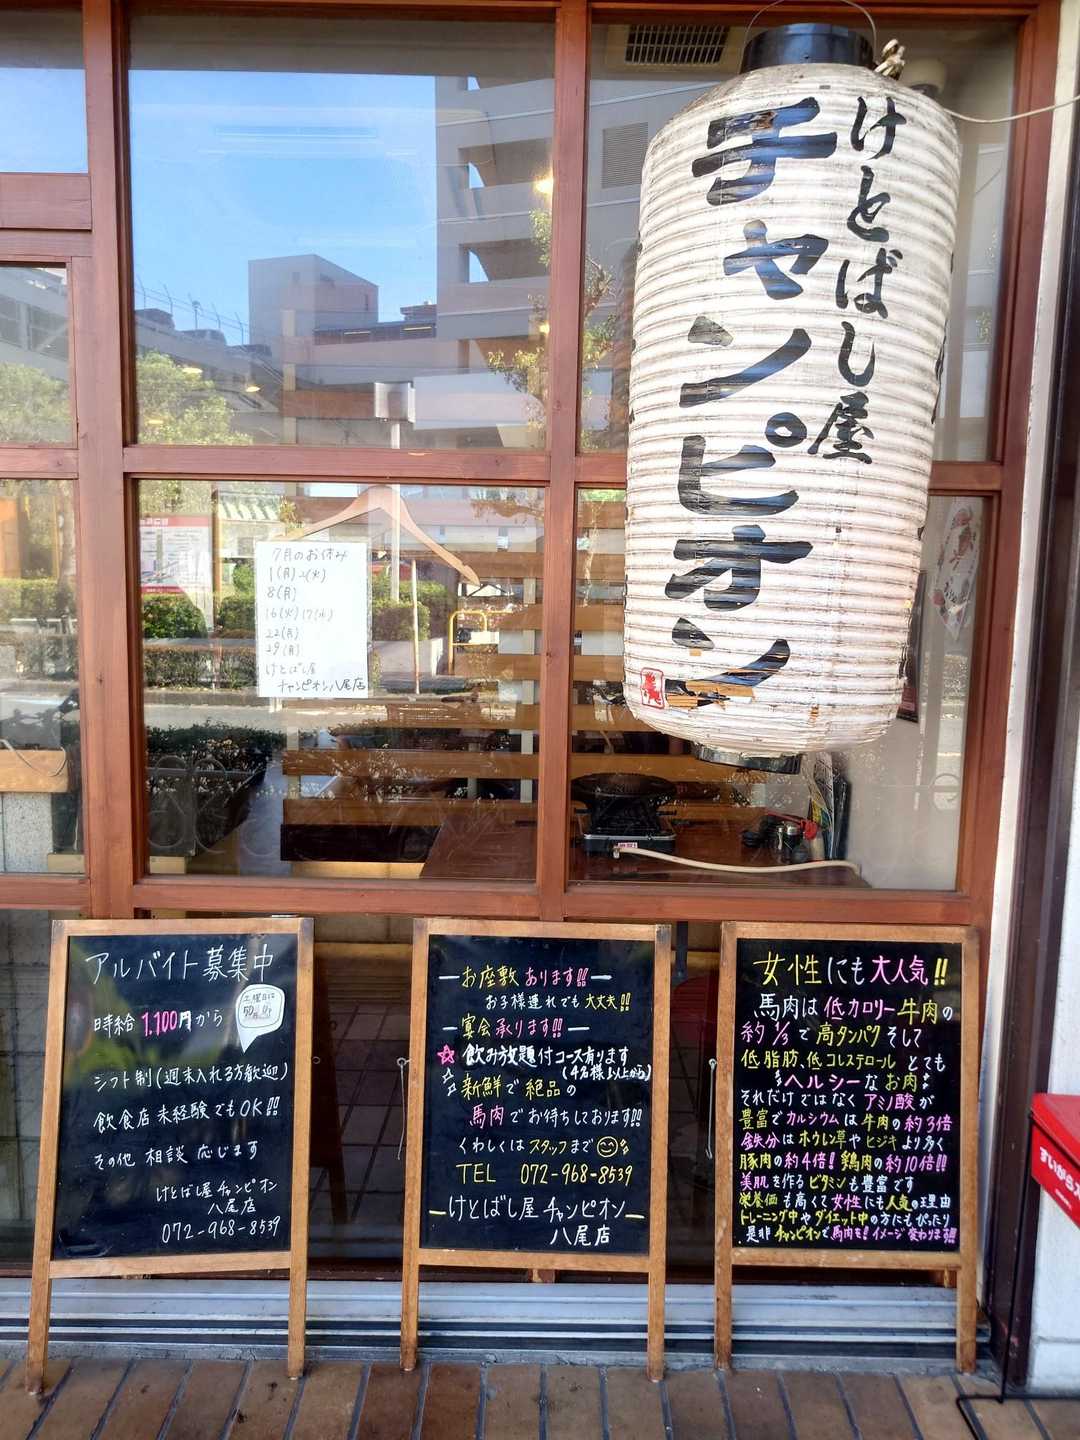 けとばし屋
チャンピオン
7月のお休み
1(月)2(火)
8(月)
16(火)17(水)
22(月)
29(月)
けとばし屋
チャンピオン八尾店
アルバイト募集中
時給 1,100円から
土曜日は
シフト制(週末入れる方歓迎)
飲食店 未経験でもOK!!
その他 相談 応じます
けとばし屋 チャンピオン
八尾店
072-968-8539
お座敷 あります!!
お子様連れでも 大丈夫!!
宴会 承ります!!
☆ 飲み放題付コース有ります
(4名様以上から)
新鮮で 絶品の
馬肉でお待ちしております!!
くわしくは スタッフまで
TEL 072-968-8539
けとばし屋 チャンピオン
八尾店
女性にも大人気!!
馬肉は 低カロリー 牛肉の
約1/3で 高タンパク そして
低脂肪、低コレステロール とても
ヘルシーな お肉
それだけではなく アミノ酸が
豊富で カルシウムは 牛肉の 約3倍
鉄分は ホウレン草や ヒジキ より多く
豚肉の 約4倍! 鶏肉の 約10倍!!
美肌を作る ビタミンも豊富です
栄養価も高くて 女性にも 人気の理由
トレーニング中や ダイエット中の方にもぴったり
是非 チャンピオンで 馬肉を! イメージ変わります!!
すいがら